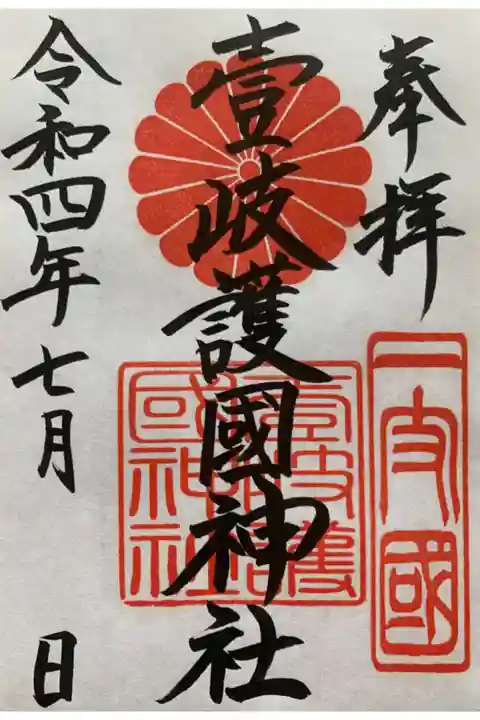 奉拝
一支國
壹岐護國神社
壹岐護
國神社
令和四年七月 日